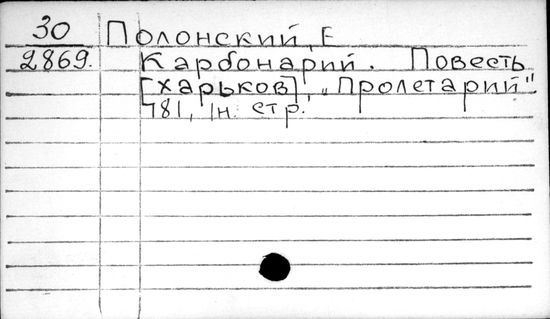 30 Полонский, Е
2869. Карбонарий. Повесть
[Харьков], „Пролетарий"
181, 1н. стр.